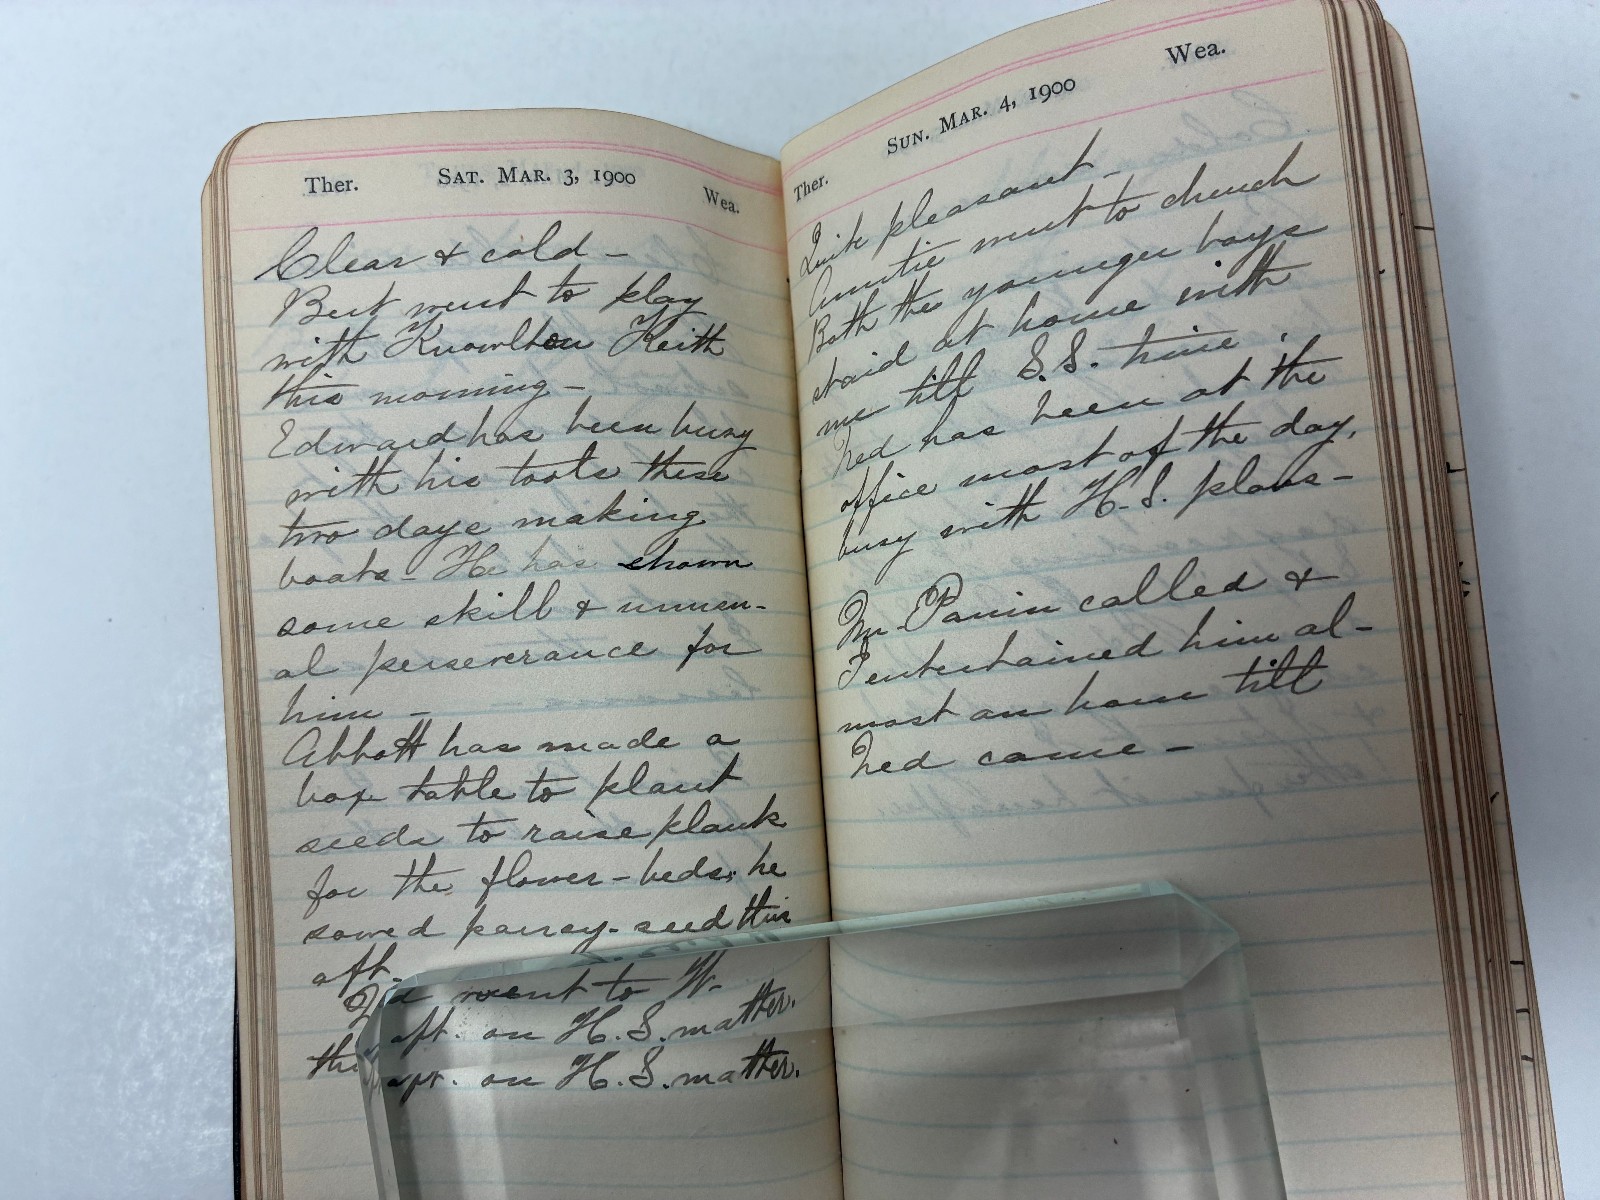 Ther. SAT. MAR. 3, 1900 Wea.
Clear & cold –
Bert went to play
with Knowlton Keith
this morning –
Edward has been busy
with his tools these
two days making
boats – He has shown
some skill & unusu-
al perseverance for
him –
Abbott has made a
box table to plant
seeds to raise plants
for the flower-beds, he
sowed pansy-seed this
aft.
Ned went to W.
this aft. on H.S. matter.
Ther. SUN. MAR. 4, 1900 Wea.
Quite pleasant –
Auntie went to church
Both the younger boys
staid at home with
me till S.S. time.
Ned has been at the
office most of the day,
busy with H.S. plans –
Mr. called &
I entertained him al-
most an hour till
Ned came –